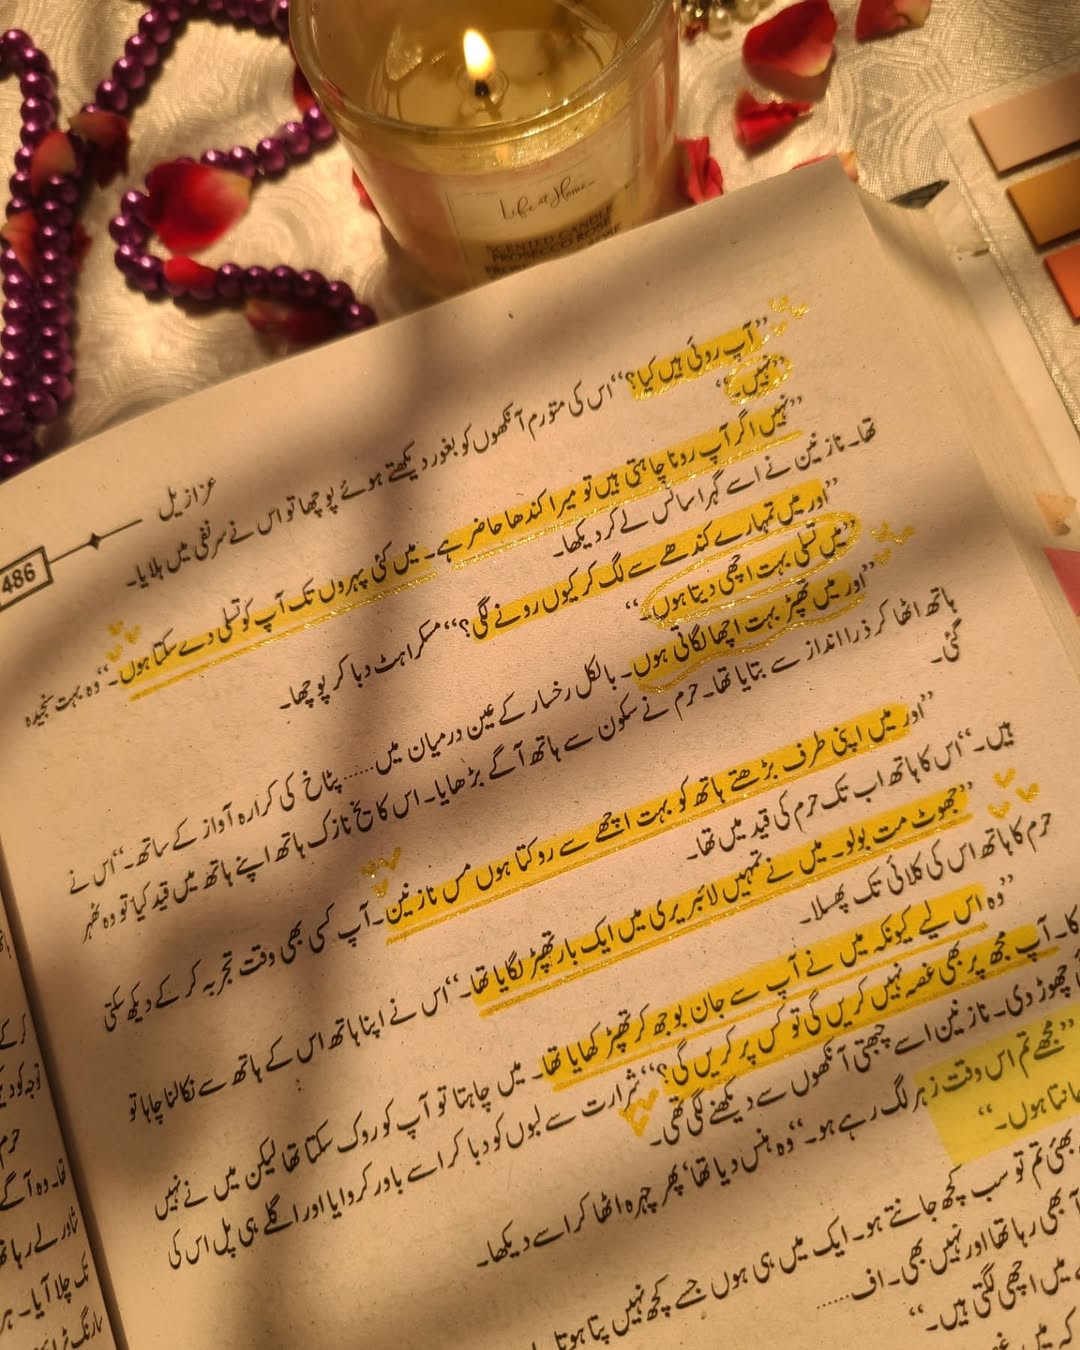 Life at Home
SCENTED CANDLE
PROSECCO ROSE
486
عزازیل
”آپ روئی ہیں کیا؟“ اس کی متورم آنکھوں کو بغور دیکھتے ہوئے پوچھا تو اس نے سر نفی میں ہلایا۔
”نہیں۔“
”نہیں اگر آپ رونا چاہتی ہیں تو میرا کندھا حاضر ہے۔ میں کئی پہروں تک آپ کو تسلی دے سکتا ہوں۔“ وہ بہت سنجیدہ
تھا۔ نازنین نے اسے گہرا سانس لے کر دیکھا۔
”اور میں تمہارے کندھے سے لگ کر کیوں رونے لگی؟“ مسکراہٹ دبا کر پوچھا۔
”میں تسلی بہت اچھی دیتا ہوں۔“
”اور میں تھپڑ بہت اچھا لگاتی ہوں۔ بالکل رخسار کے عین درمیان میں...... پٹاخ کی کرارہ آواز کے ساتھ۔“ اس نے
ہاتھ اٹھا کر ذرا انداز سے بتایا تھا۔ حرم نے سکون سے ہاتھ آگے بڑھایا۔ اس کا یخ نازک ہاتھ اپنے ہاتھ میں قید کیا تو وہ ٹھہر
گئی۔
”اور میں اپنی طرف بڑھتے ہاتھ کو بہت اچھے سے روکتا ہوں مس نازنین۔ آپ کسی بھی وقت تجربہ کر کے دیکھ سکتی
ہیں۔“ اس کا ہاتھ اب تک حرم کی قید میں تھا۔
”جھوٹ مت بولو۔ میں نے تمہیں لائبریری میں ایک بار تھپڑ لگایا تھا۔“ اس نے اپنا ہاتھ اس کے ہاتھ سے نکالنا چاہا تو
حرم کا ہاتھ اس کی کلائی تک پھسلا۔
”وہ اس لیے کیونکہ میں نے آپ سے جان بوجھ کر تھپڑ کھایا تھا۔ میں چاہتا تو آپ کو روک سکتا تھا لیکن میں نے نہیں
کا۔ آپ مجھ پر بھی غصہ نہیں کریں گی تو کس پر کریں گی؟“ شرارت سے لبوں کو دبا کر اسے باور کروایا اور اگلے ہی پل اس کی
چھوڑ دی۔ نازنین اسے چبھتی آنکھوں سے دیکھنے لگی تھی۔
”مجھے تم اس وقت زہر لگ رہے ہو۔“ وہ ہنس دیا تھا‘ پھر چہرہ اٹھا کر اسے دیکھا۔
جانتا ہوں۔“
بھئی تم تو سب کچھ جانتے ہو۔ ایک میں ہی ہوں جسے کچھ نہیں پتا ہوتا
بھی رہا تھا اور نہیں بھی۔ اف......
میں اچھی لگتی ہیں۔“
کہ میں